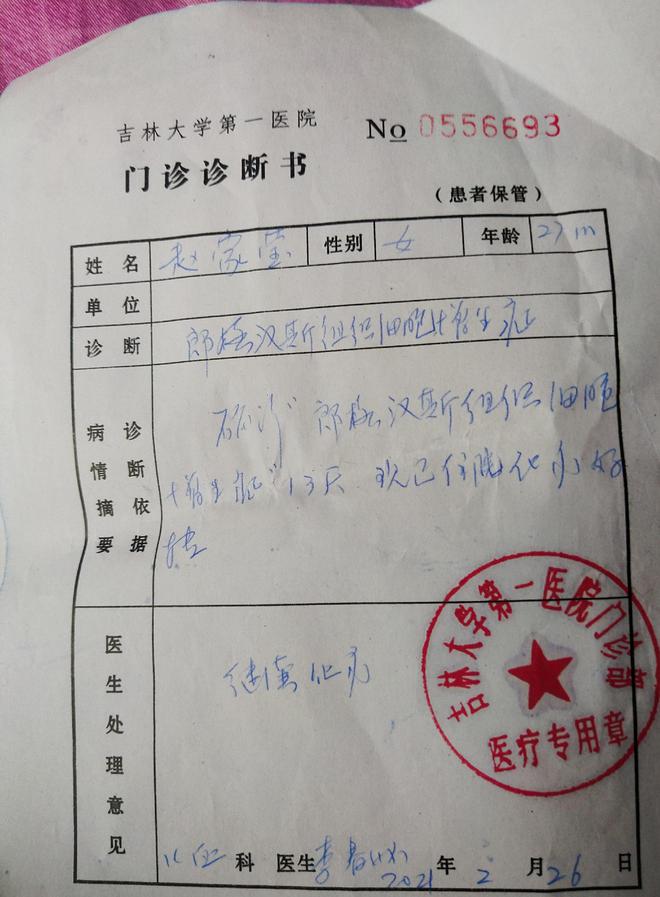 吉林大学第一医院
No 0556693
门诊诊断书
（患者保管）
姓名 赵家莹 性别 女 年龄 27m
单位
诊断 郎格汉斯组织细胞增生症
病情摘要 诊断依据 确诊"郎格汉斯组织细胞
增生症"13天 现已住院化疗好
转
医生处理意见 继续化疗
科 医生 李春 2021年2月26日
吉林大学第一医院门诊部
医疗专用章